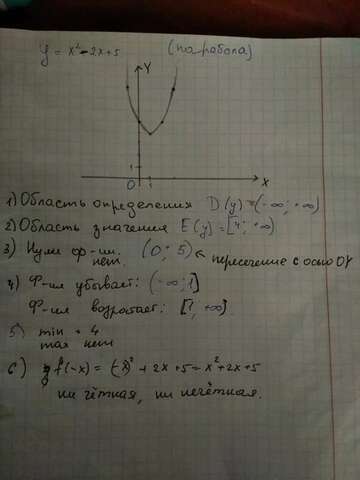 y = x² - 2x + 5 (парабола)
Y
1
0 1 X
1) Область определения D(y) = (-∞; +∞)
2) Область значения E(y) = [4; +∞)
3) Нули ф-ии. (0; 5) ← пересечение с осью OY
нет.
4) Ф-ия убывает: (-∞; 1]
Ф-ия возрастает: [1, +∞).
5) min = 4
max нет
6) f(-x) = (-x)² + 2x + 5 = x² + 2x + 5
ни чётная, ни нечётная.